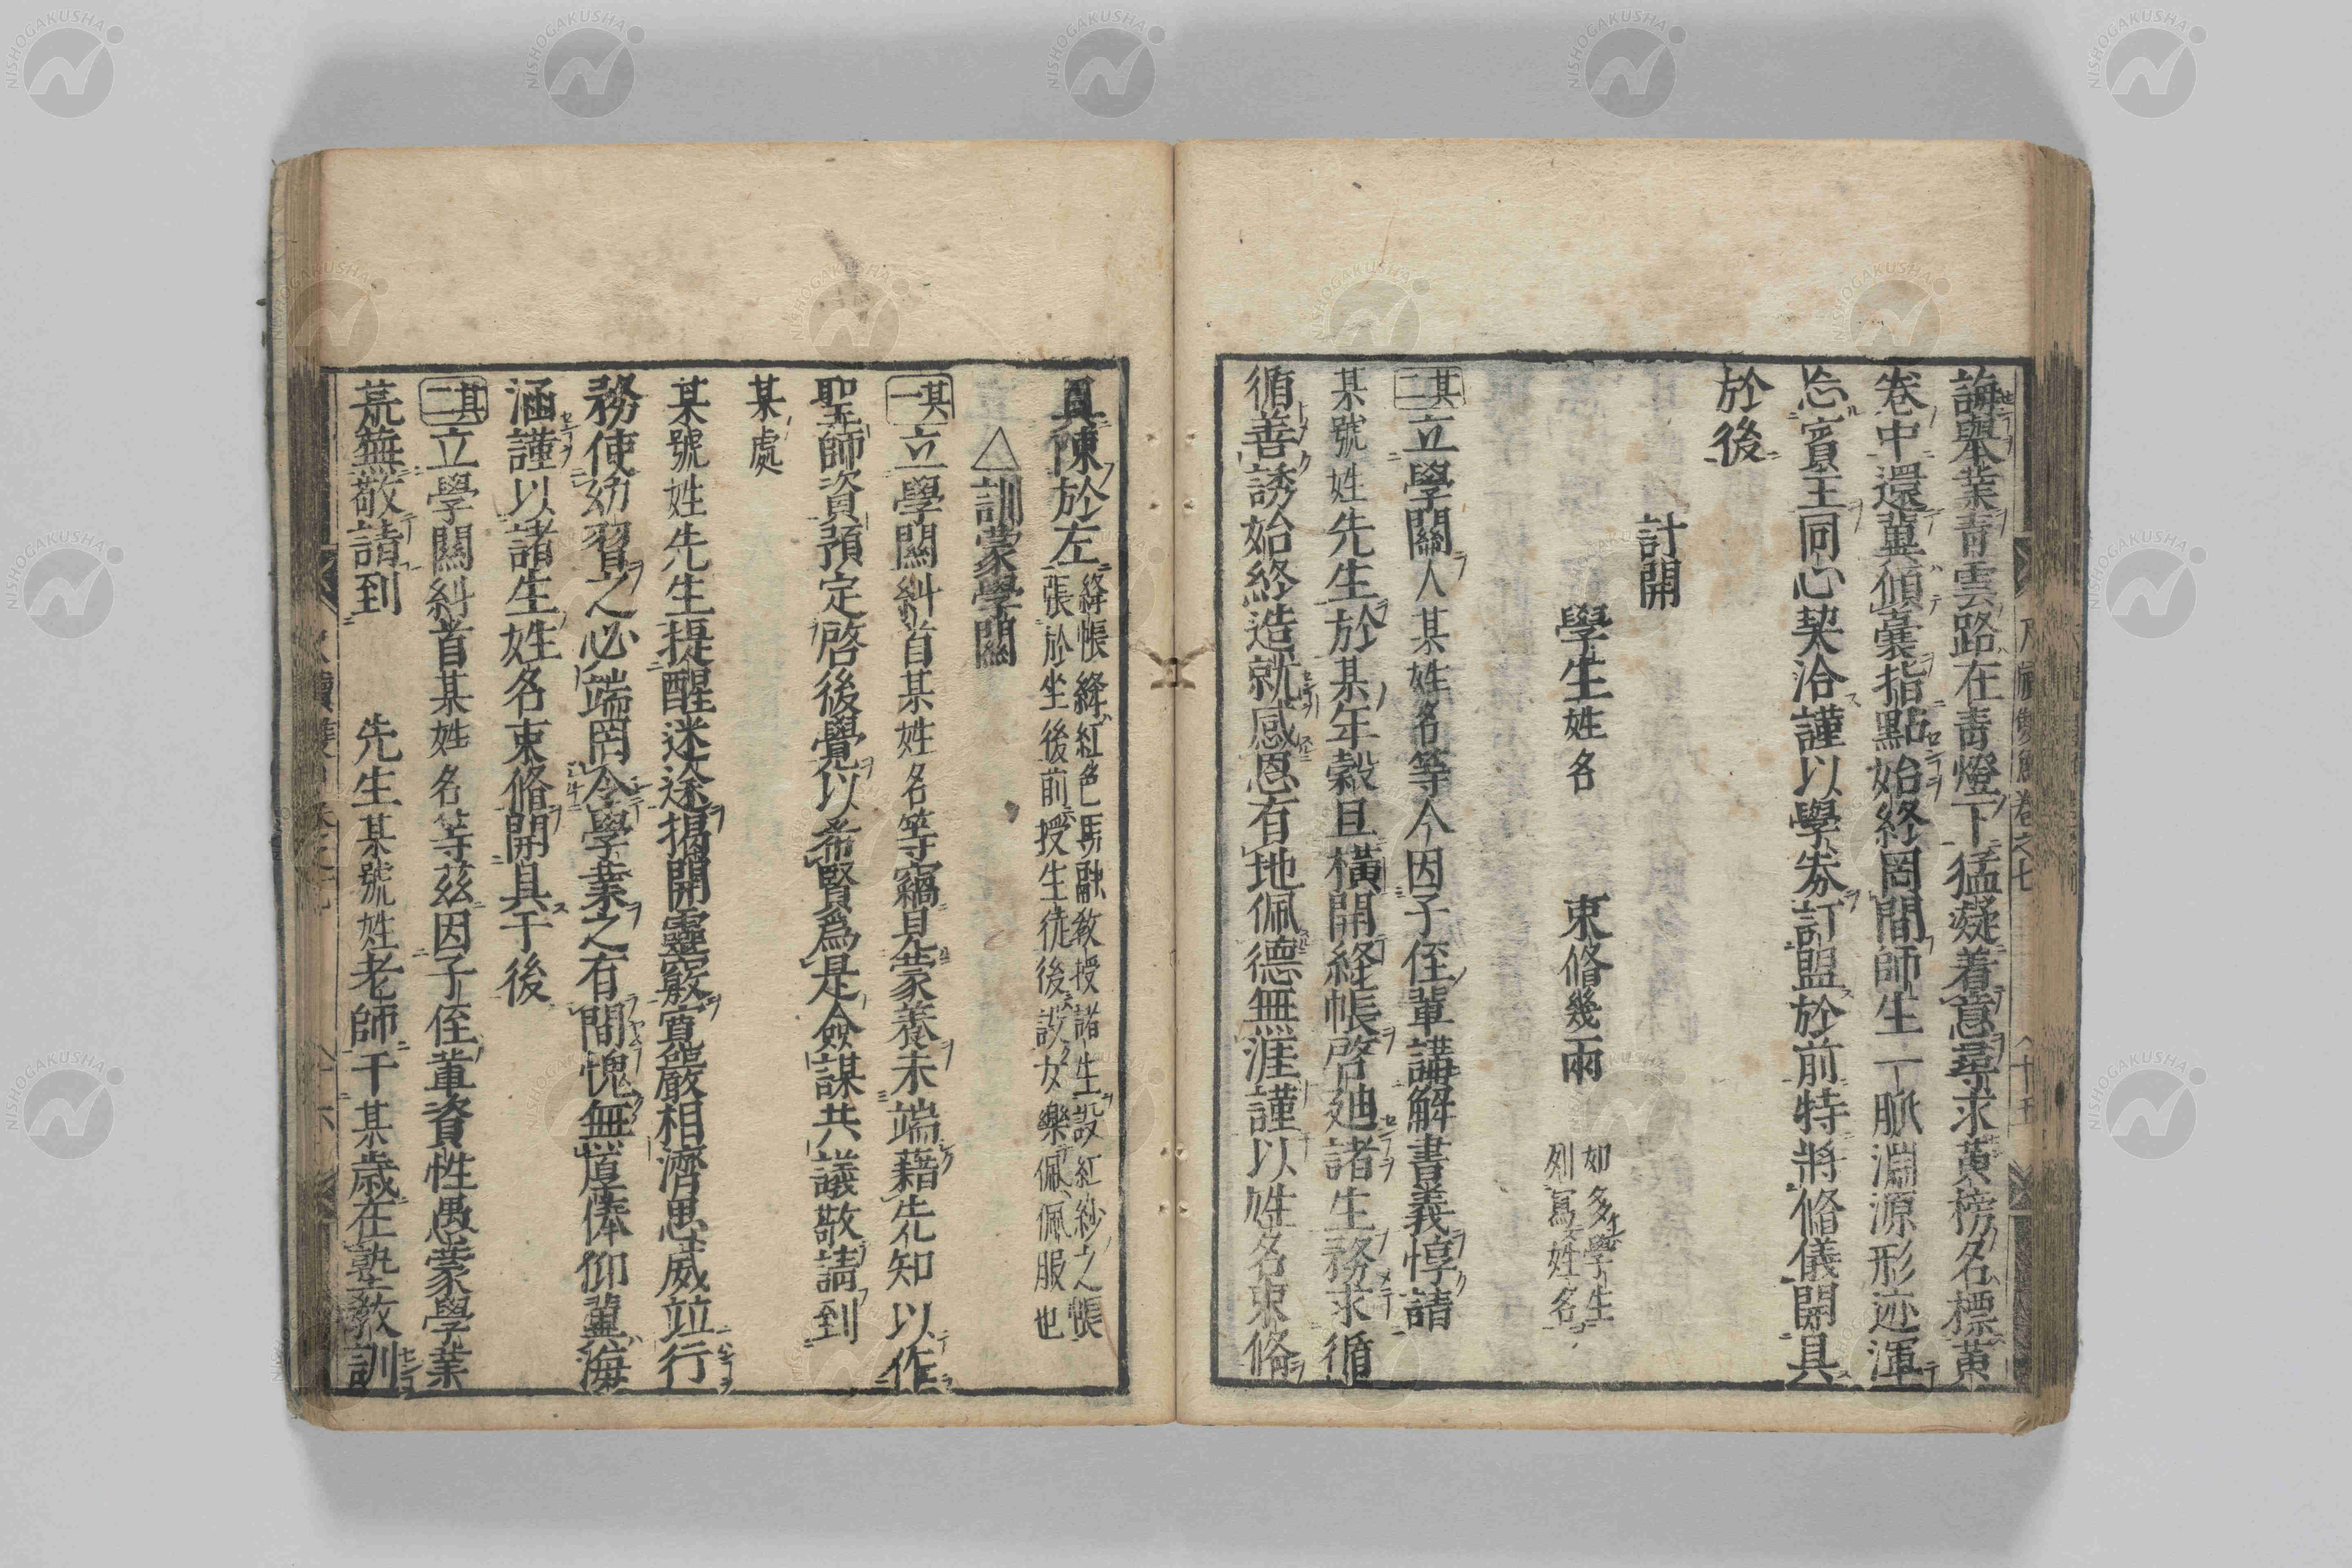 誨舉業青雲路在青燈下猛凝着意尋求黃榜名標黃
卷中還冀傾囊指點始終罔間師生一脉淵源形迹渾
忘賓主同心契洽謹以學券訂盟於前特將脩儀開具
於後
計開
學生姓名 束脩幾兩 如多學生
列寫姓名
其二立學關人某姓名等今因子侄輩講解書義惇請
某號姓先生於某年穀旦橫開絳帳啓廸諸生務求循
循善誘始終造就感恩有地佩德無涯謹以姓名束脩
具陳於左 絳帳絳紅色馬融教授諸生設紅紗之帳
張於坐後前授生徒後設女樂佩佩服也
△訓蒙學關
其一立學關糾首某姓名等竊見蒙養未端藉先知以作
聖師資預定啓後覺以希賢爲是僉謀共議敬請到
某處
某號姓先生提醒迷途揭開靈竅寬嚴相濟思威竝行
務使幼習之必端罔令學業之有間愧無厚俸仰冀海
涵謹以諸生姓名束脩開具于後
其二立學關糾首某姓名等茲因子侄輩資性愚蒙學業
荒蕪敬請到 先生某號姓老師于某歲在塾教訓
卷之七
十五
NISHOGAKUSHA